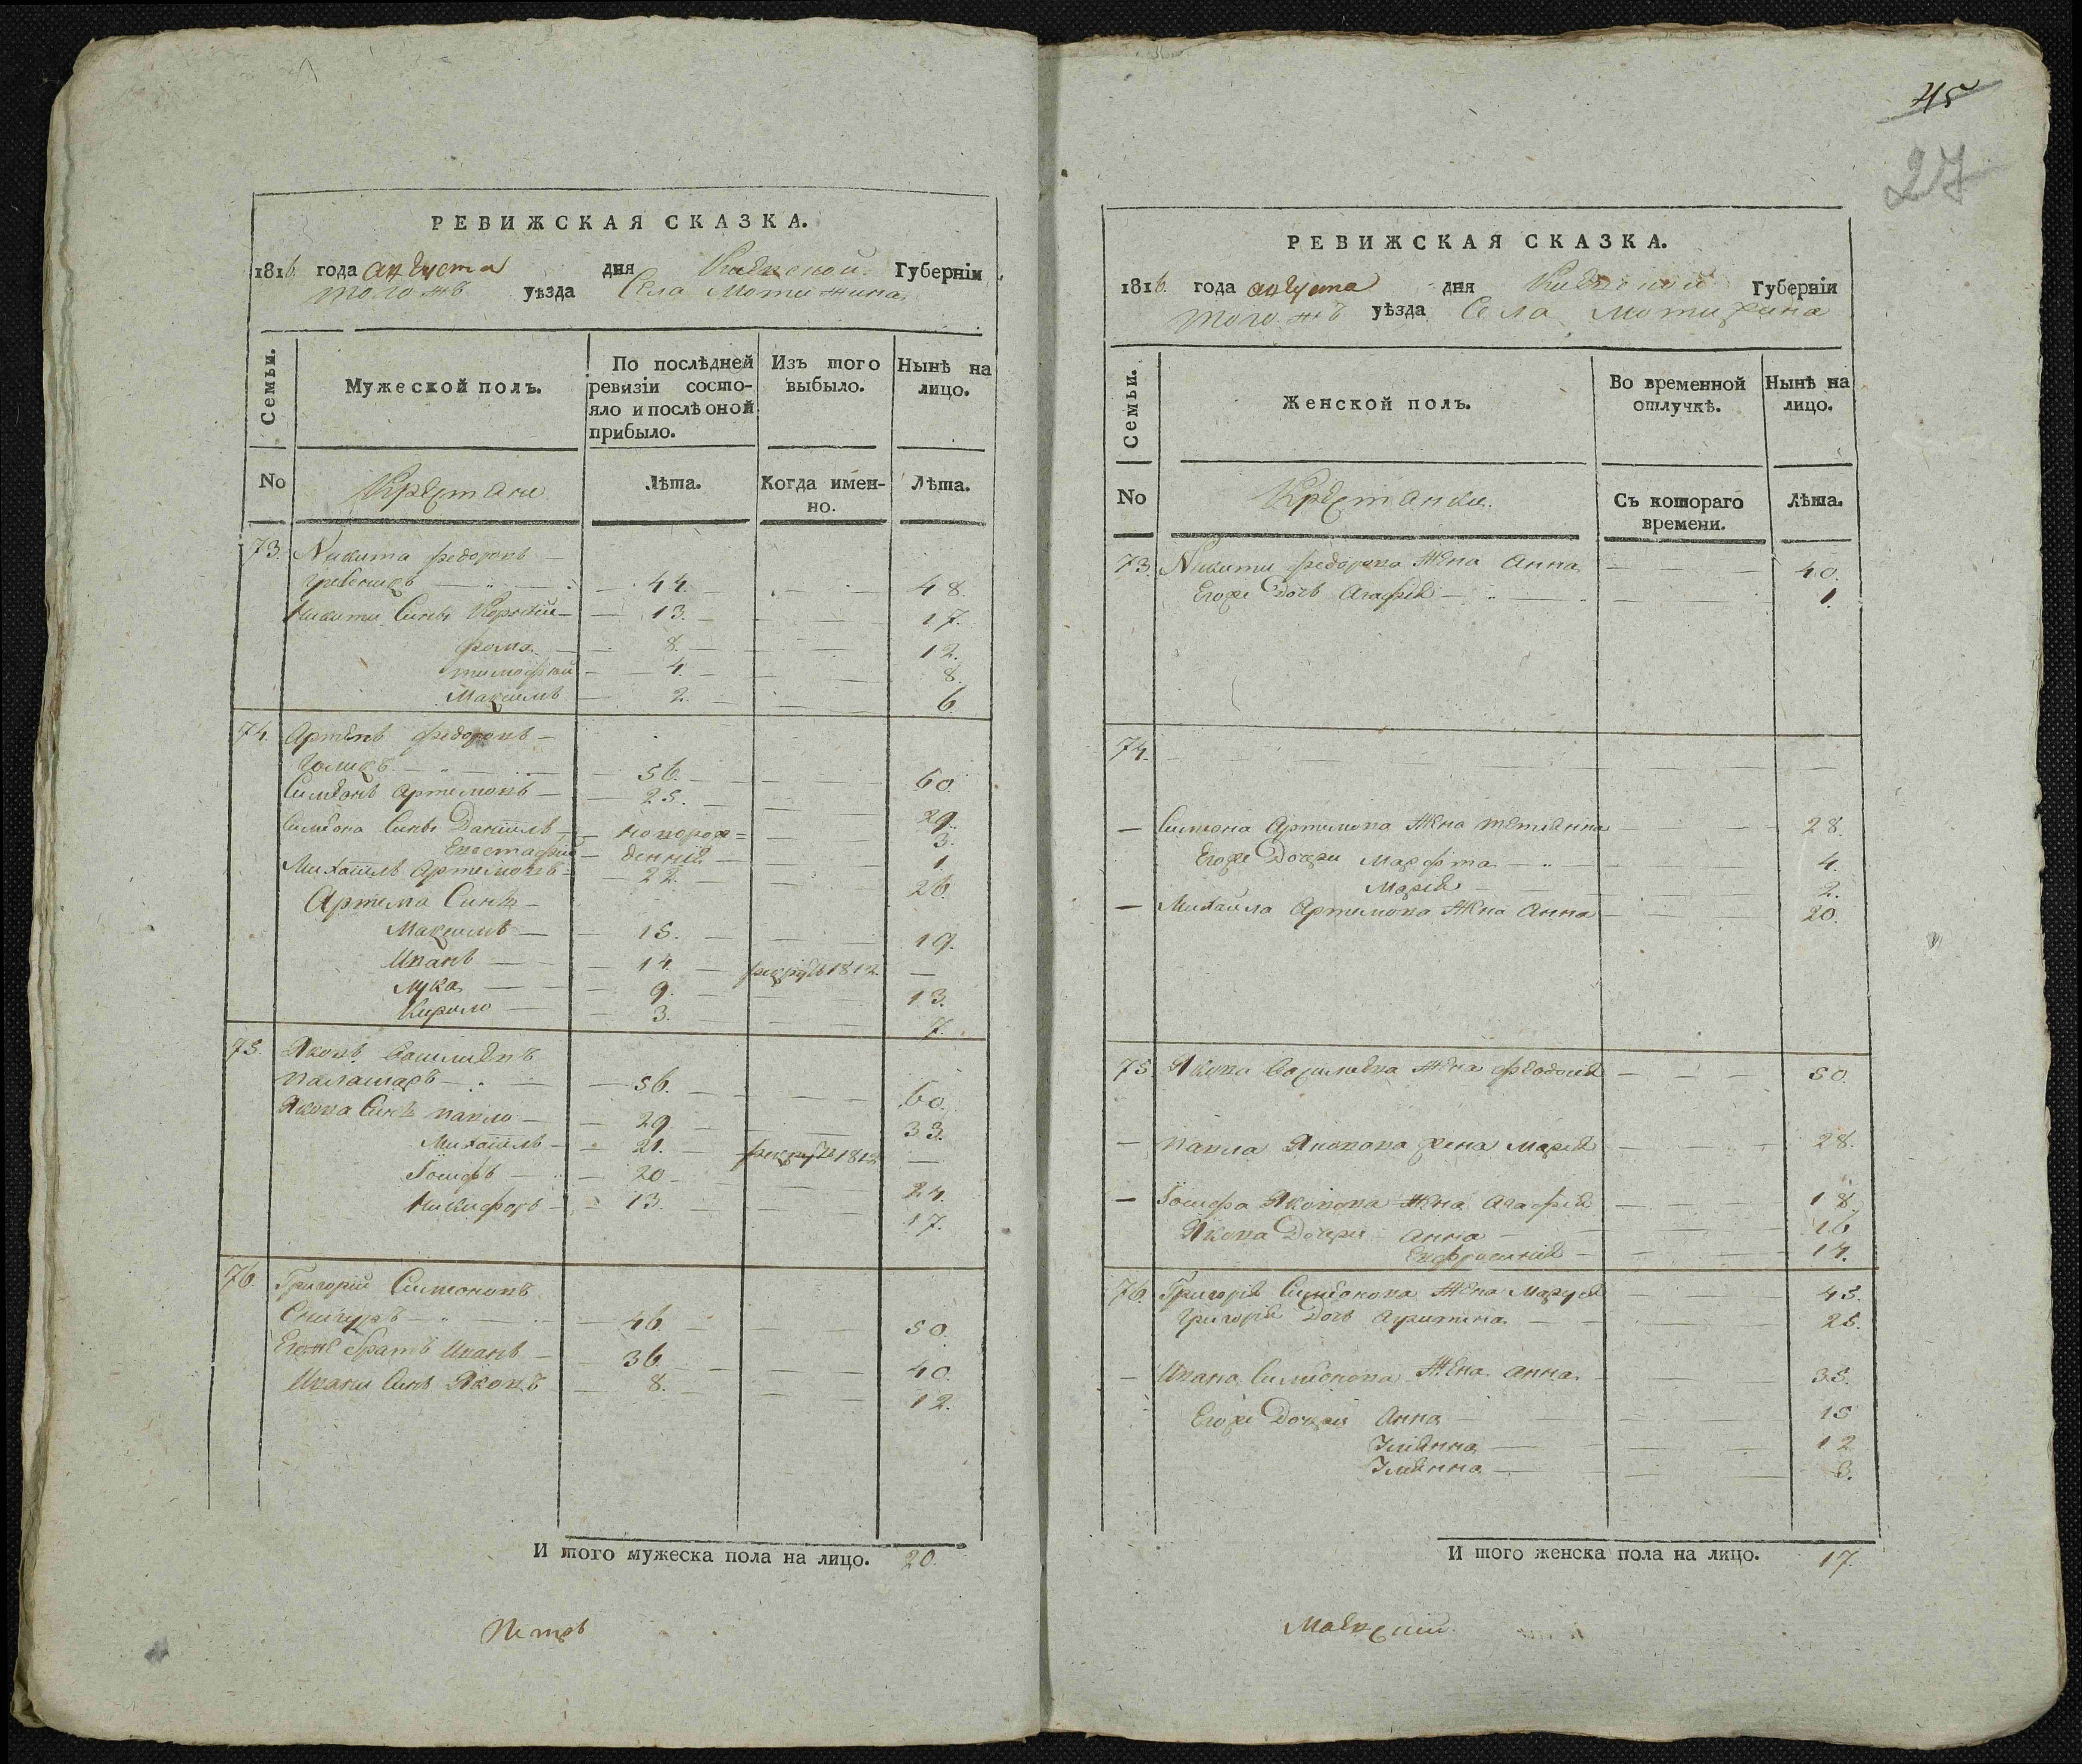 РЕВИЖСКАЯ СКАЗКА.
1816 года августа дня Киевской Губерніи
того жъ уѣзда Села Мотижина
Семьи.
Мужеской полъ.
По послѣдней ревизіи состо-
яло и послѣ оной
прибыло.
Изъ того
выбыло.
Нынѣ на
лицо.
No
Крестяне
Лѣта.
Когда имен-
но.
Лѣта.
73. Никита федоровъ
44. 48.
Никити Сины 13. 17.
фома 8. 12.
тимофѣй 4. 8.
Максимъ 2. 6
74. Артемъ федоровъ
56. 60
Симеонъ Артемовъ 25. 29.
Симеона Сины Даніилъ новорож= 3.
Евстафій деннiе 1.
Михаилъ Артемовъ 22. 26.
Артема Сины
Максимъ 15. 19.
Иванъ 14. рекрутъ 1812.
Лука 9. 13.
Кирило 3. 7.
75. Яковъ Василиевъ
паламаръ 56. 60.
Якова Сины павло 29. 33.
Михаилъ 21. рекрутъ 1812
Іосифъ 20 24.
Никифоръ 13. 17.
76. Григорій Симеоновъ
Снигуръ 46 50.
Егоже братъ Иванъ 36 40.
Ивана Синъ Яковъ 8. 12.
И того мужеска пола на лицо. 20.
Петръ
45
27
РЕВИЖСКАЯ СКАЗКА.
1816. года августа дня Киевской Губерніи
того жъ уѣзда Села Мотижина
Семьи.
Женской полъ.
Во временной
отлучкѣ.
Нынѣ на
лицо.
No
Крестянки.
Съ котораго
времени.
Лѣта.
73. Никити федорова Жена Анна 40.
Егоже Дочъ Агафія 1.
74.
Симеона Артимова Жена тетіянна 28.
Егоже Дочери Марфта 4.
Марія 2.
Михаила Артимова Жена Анна 20.
75. Якова Василиева Жена феодосія 50.
павла Яковова жена Марія 28.
Іосифа Яковова Жена Агафія 18.
Якова Дочери Анна 16
Евфросинія 14.
76. Григорія Симеонова Жена 45.
Григорія Дочъ 25.
Ивана Симеонова Жена Анна 35.
Егоже Дочери Анна 15
Уліянна 12
Уліянна 3.
И того женска пола на лицо. 17.